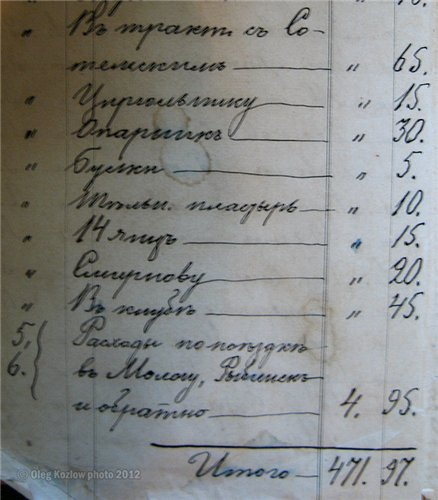 " Въ тракт. съ Со-
тельскимъ — " 65.
" Цирюльнику — " 15.
" Опарышъ — " 30.
" Булки — " 5.
" пластырь — " 10.
" 14 яицъ — " 15.
" Смирнову — " 20.
" Въ клубѣ — " 45.
5, Расходы по поѣздкѣ
6. въ Мологу, Рыбинскъ
и обратно — 4. 95.
Итого — 471. 97.
© Oleg Kozlow photo 2012